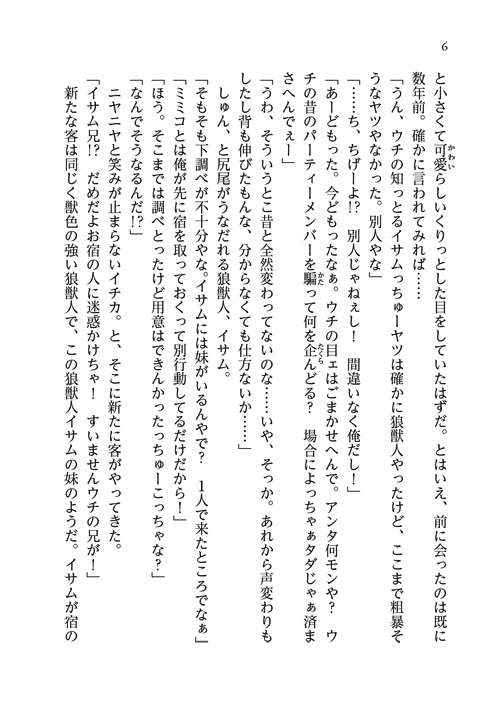 6
と小さくて可愛らしいくりっとした目をしていたはずだ。とはいえ、前に会ったのは既に
かわい
数年前。確かに言われてみれば……
「うん、ウチの知っとるイサムっちゅーヤツは確かに狼獣人やったけど、ここまで粗暴そ
うなヤツやなかった。別人やな」
「……ち、ちげーよ!?　別人じゃねぇし！　間違いなく俺だし！」
「あーどもった。今どもったなぁ。ウチの目ェはごまかせへんで。アンタ何モンや？　ウ
チの昔のパーティーメンバーを騙って何を企んどる？　場合によっちゃぁタダじゃぁ済ま
かた
たくら
さへんでぇー」
「うわ、そういうとこ昔と全然変わってないのな……いや、そっか。あれから声変わりも
したし背も伸びたもんな、分からなくても仕方ないか……」
しゅん、と尻尾がうなだれる狼獣人、イサム。
「そもそも下調べが不十分やな。イサムには妹がいるんやで？　1人で来たところでなぁ」
「ミミコとは俺が先に宿を取っておくって別行動してるだけだから！」
「ほう。そこまでは調べとったけど用意はできんかったっちゅーこっちゃな？」
「なんでそうなるんだ!?」
ニヤニヤと笑みが止まらないイチカ。と、そこに新たに客がやってきた。
「イサム兄!?　だめだよお宿の人に迷惑かけちゃ！　すいませんウチの兄が！」
新たな客は同じく獣色の強い狼獣人で、この狼獣人イサムの妹のようだ。イサムが宿の